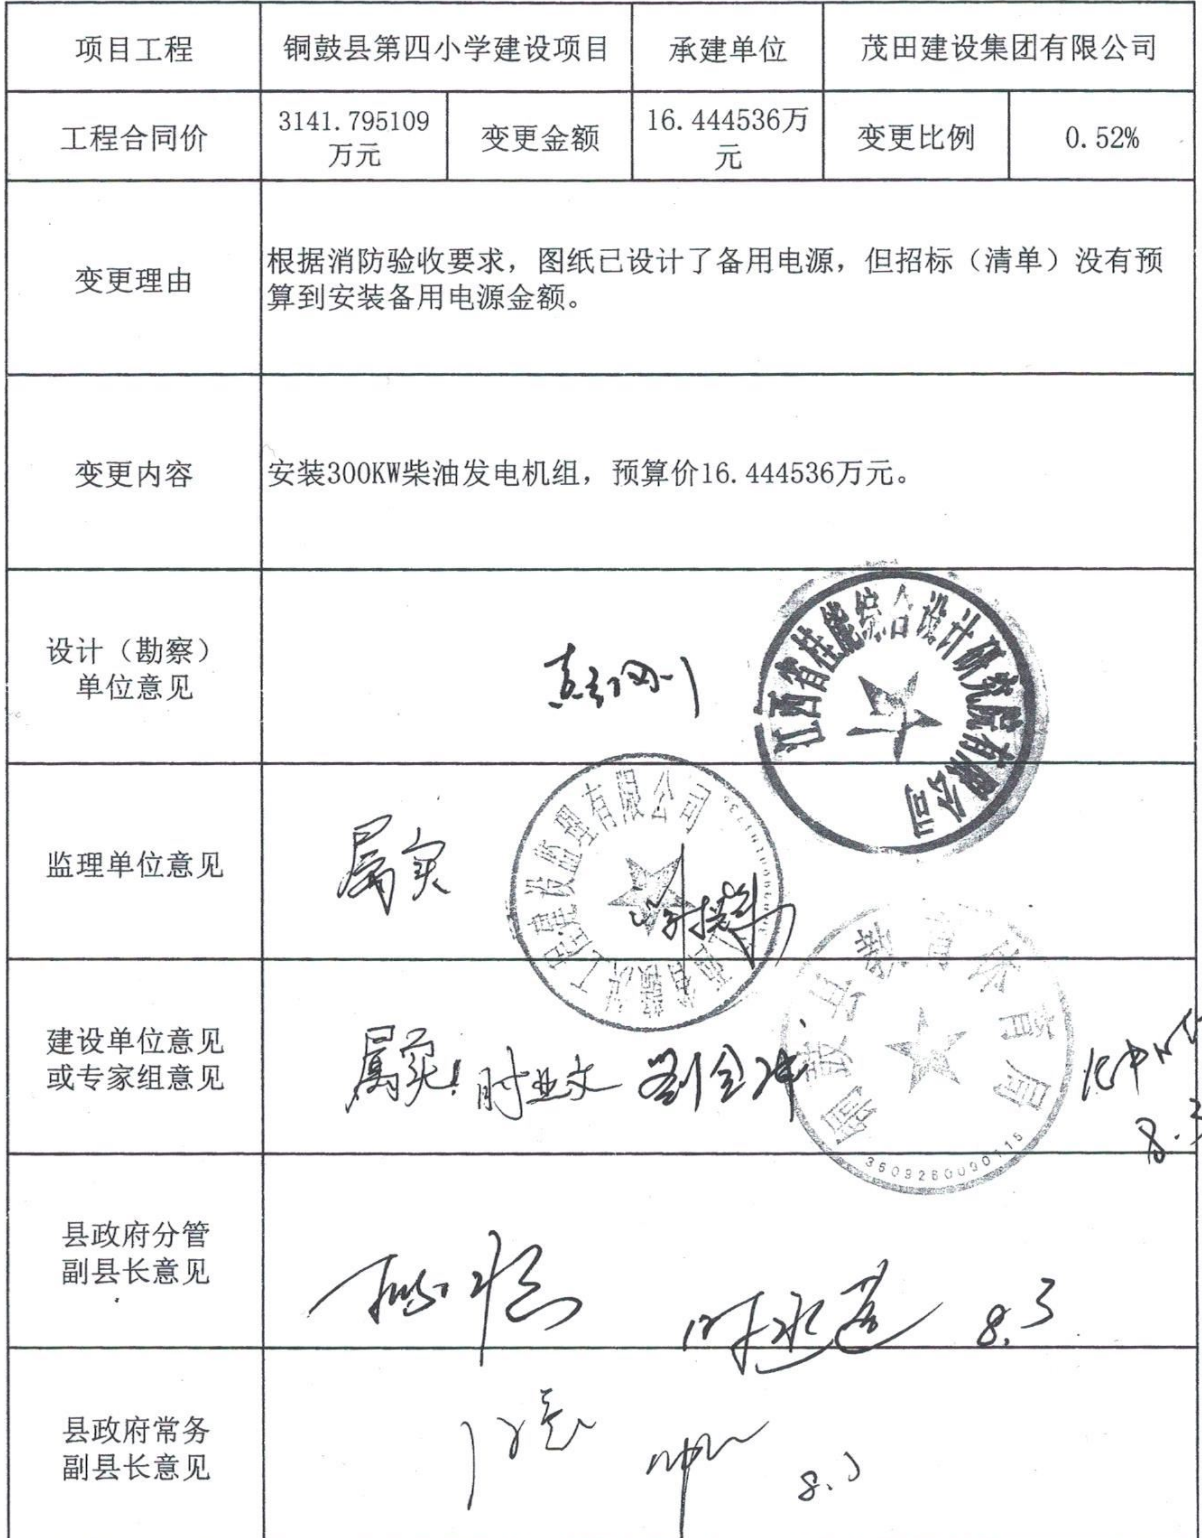 项目工程
铜鼓县第四小学建设项目
承建单位
茂田建设集团有限公司
工程合同价
3141.795109
万元
变更金额
16.444536万
元
变更比例
0.52%
变更理由
根据消防验收要求，图纸已设计了备用电源，但招标（清单）没有预
算到安装备用电源金额。
变更内容
安装300KW柴油发电机组，预算价16.444536万元。
设计（勘察）
单位意见
江西省佳能综合设计研究院有限公司
监理单位意见
属实
工程建设监理有限公司
建设单位意见
或专家组意见
属实
铜鼓县教育体育局
8.3
县政府分管
副县长意见
8.3
县政府常务
副县长意见
8.3